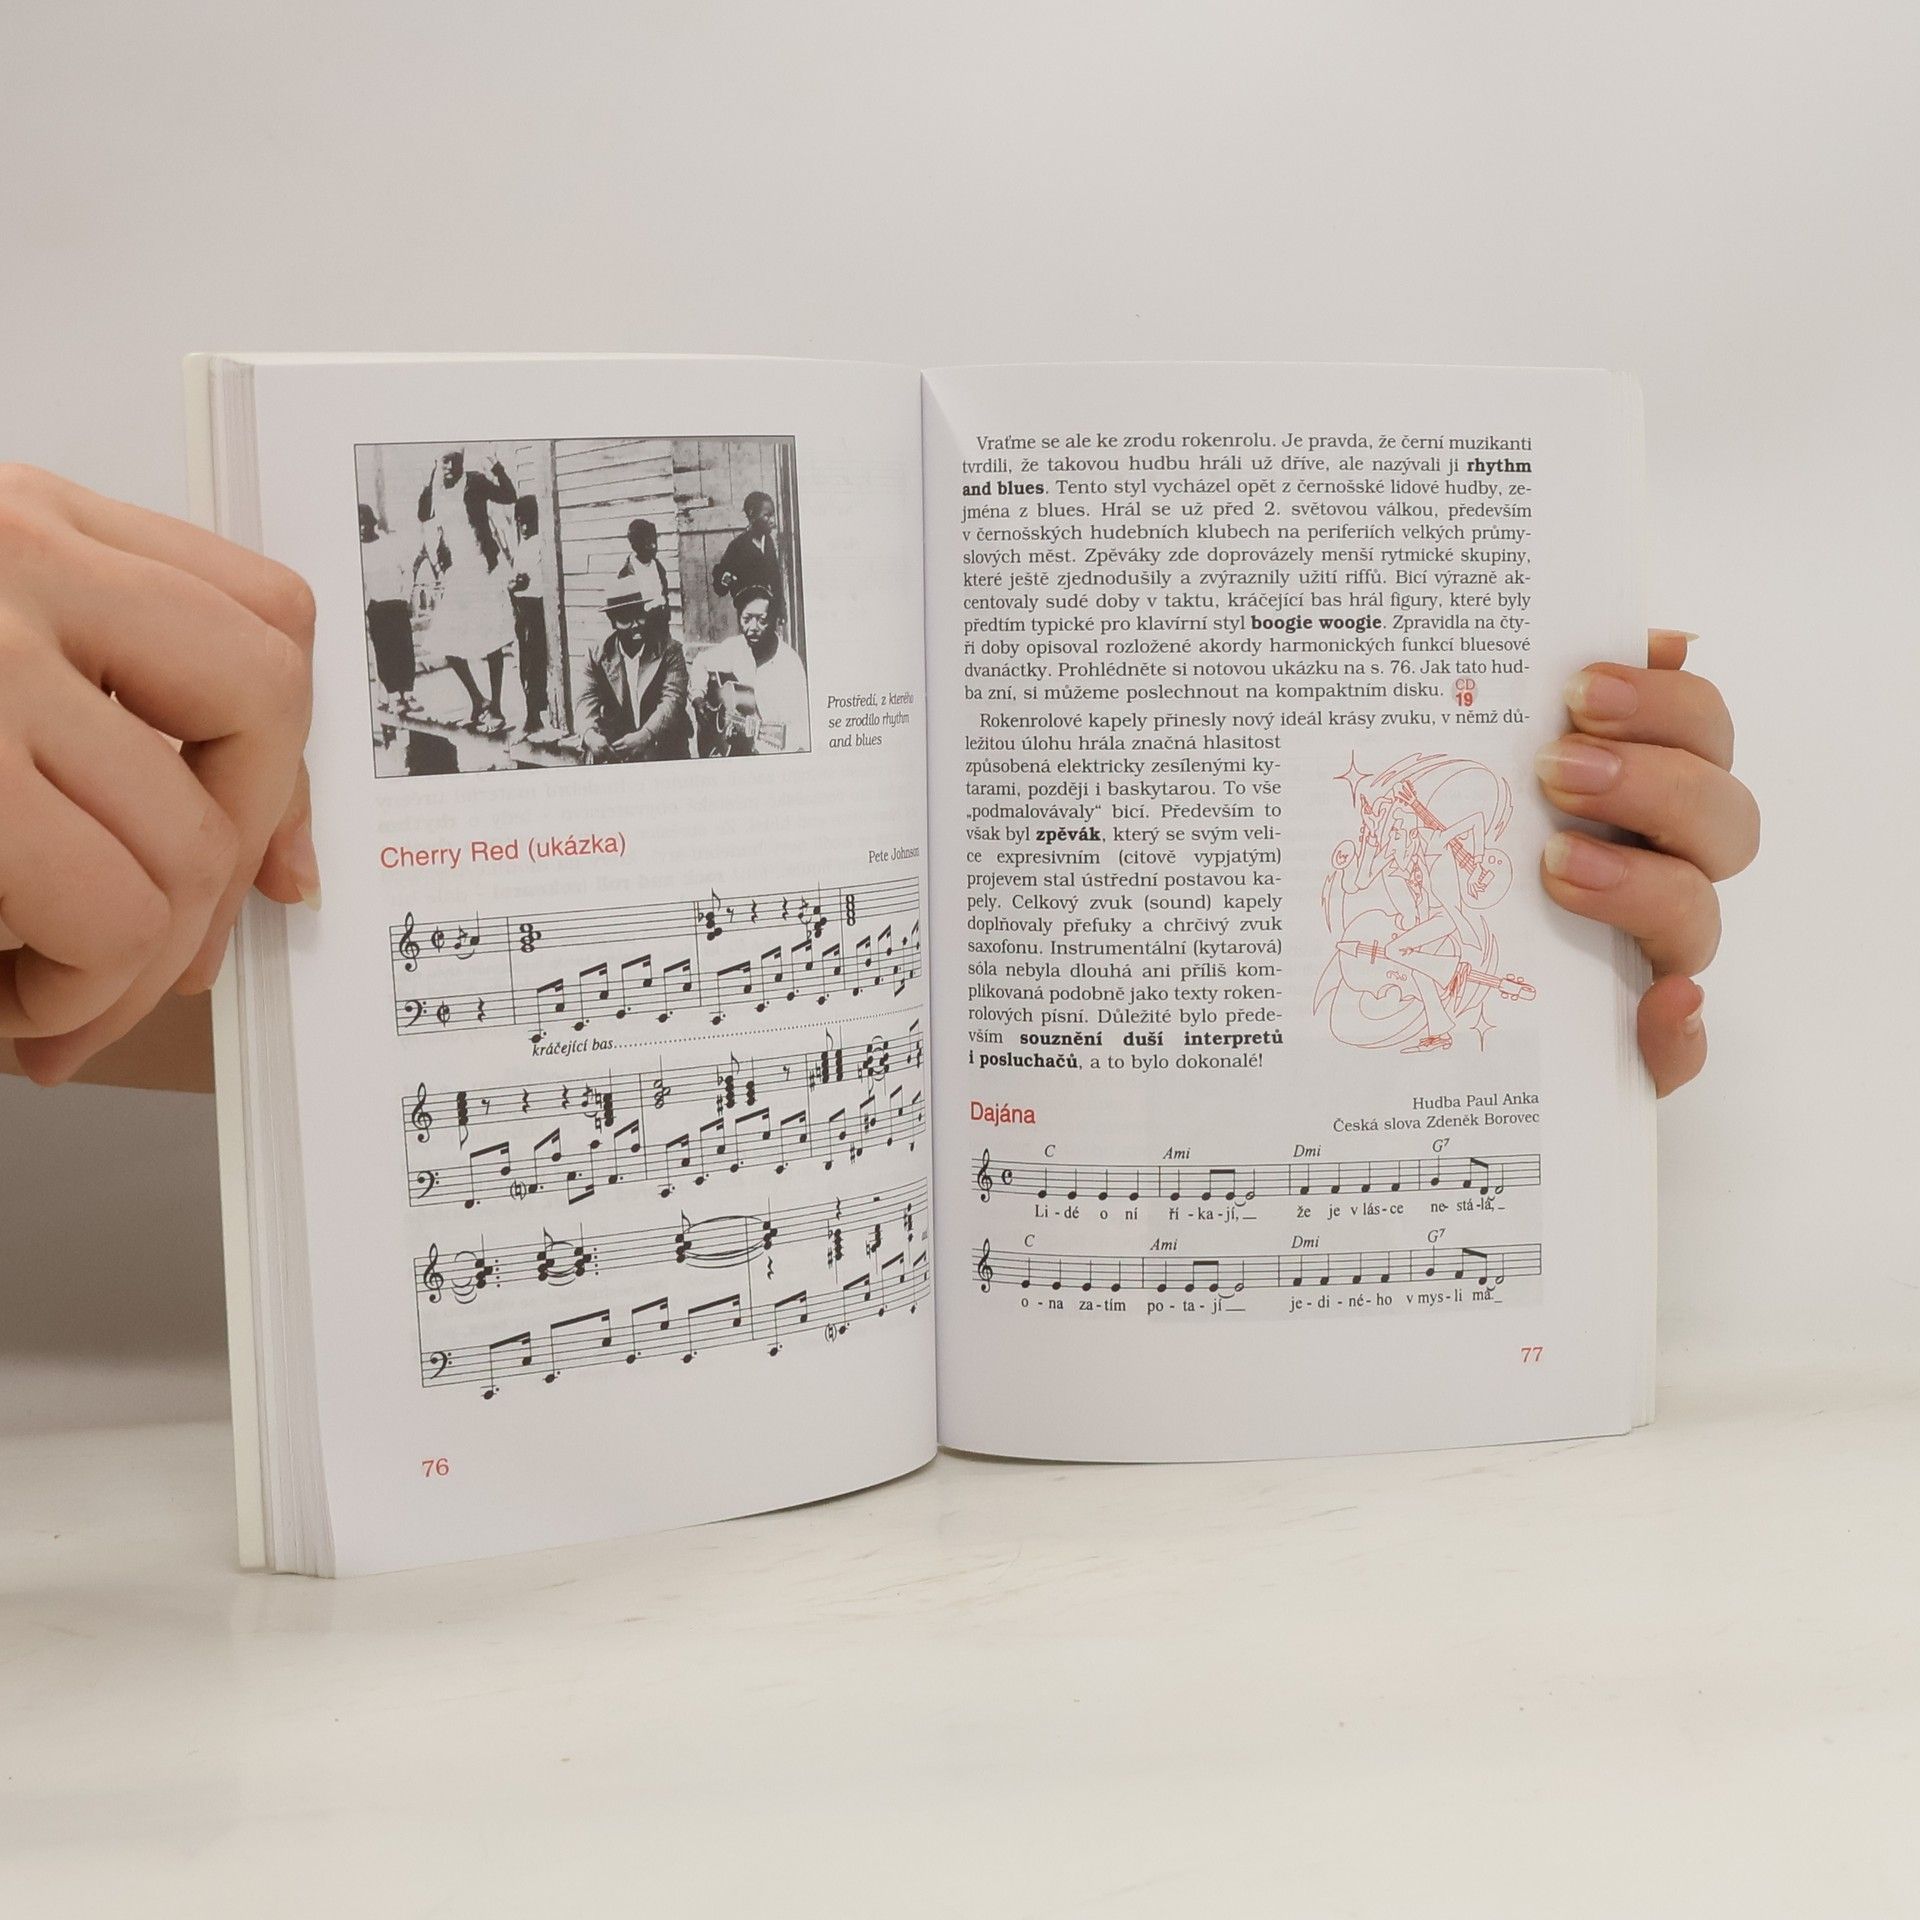 Prostředí, z kterého
se zrodilo rhythm
and blues
Cherry Red (ukázka)
Pete Johnson
kráčející bas
76
Vraťme se ale ke zrodu rokenrolu. Je pravda, že černí muzikanti
tvrdili, že takovou hudbu hráli už dříve, ale nazývali ji rhythm
and blues. Tento styl vycházel opět z černošské lidové hudby, ze-
jména z blues. Hrál se už před 2. světovou válkou, především
v černošských hudebních klubech na periferiích velkých průmy-
slových měst. Zpěváky zde doprovázely menší rytmické skupiny,
které ještě zjednodušily a zvýraznily užití riffů. Bicí výrazně ak-
centovaly sudé doby v taktu, kráčející bas hrál figury, které byly
předtím typické pro klavírní styl boogie woogie. Zpravidla na čty-
ři doby opisoval rozložené akordy harmonických funkcí bluesové
dvanáctky. Prohlédněte si notovou ukázku na s. 76. Jak tato hud-
ba zní, si můžeme poslechnout na kompaktním disku. CD 19
Rokenrolové kapely přinesly nový ideál krásy zvuku, v němž dů-
ležitou úlohu hrála značná hlasitost
způsobená elektricky zesílenými ky-
tarami, později i baskytarou. To vše
„podmalovávaly“ bicí. Především to
však byl zpěvák, který se svým veli-
ce expresivním (citově vypjatým)
projevem stal ústřední postavou ka-
pely. Celkový zvuk (sound) kapely
doplňovaly přefuky a chrčivý zvuk
saxofonu. Instrumentální (kytarová)
sóla nebyla dlouhá ani příliš kom-
plikovaná podobně jako texty roken-
rolových písní. Důležité bylo přede-
vším souznění duší interpretů
i posluchačů, a to bylo dokonalé!
Dajána
Hudba Paul Anka
Česká slova Zdeněk Borovec
C Ami Dmi G7
Li - dé o ní ří - ka - jí, že je v lás - ce ne - stá - lá,
C Ami Dmi G7
o - na za - tím po - ta - jí je - di - né - ho v mys - li má.
77